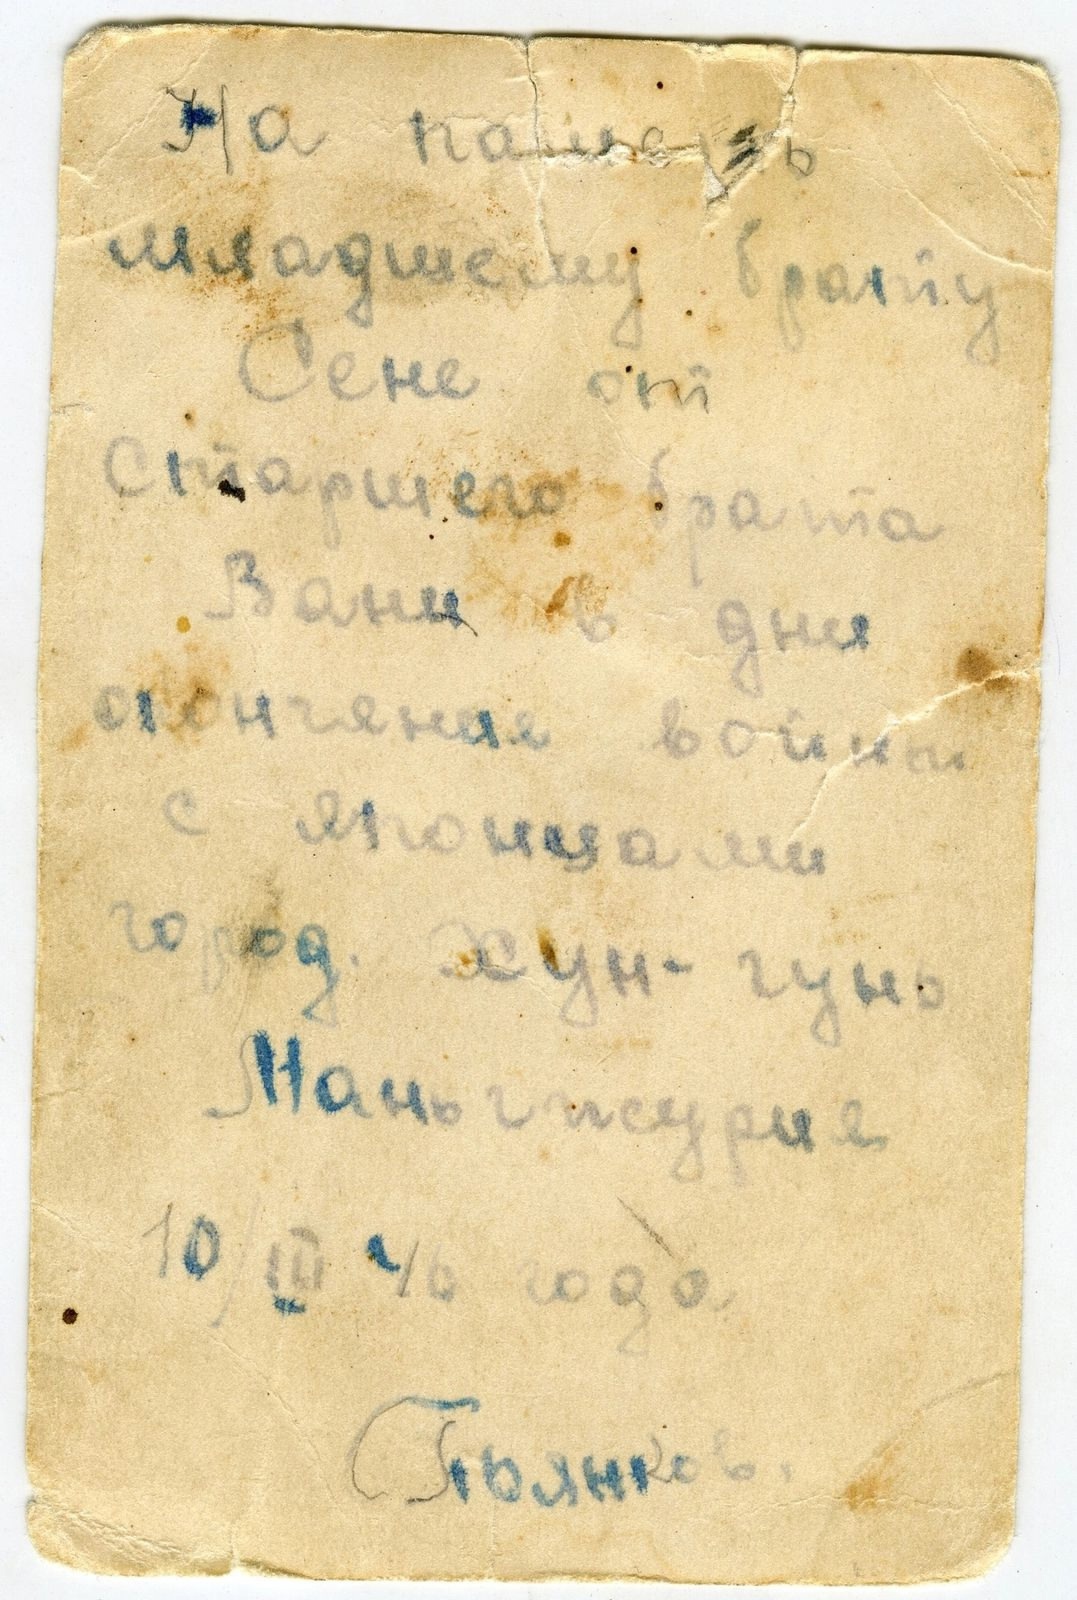 На память
младшему брату
Сене от
Старшего брата
Вани в дни
окончяния войны
с японцами
город. Хун-чунь
Маньчжурия
10/III 46 года
Пьянков.